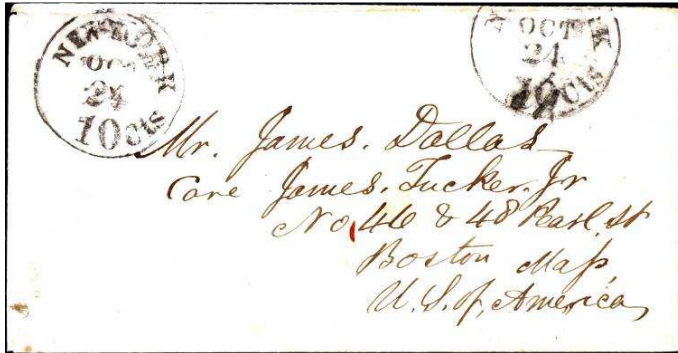 NEW YORK
OCT
24
10 cts
OCT
24
10 cts
Mr. James. Dallas
Care James. Tucker. Jr
No 46 & 48 Pearl. St
Boston Mass
U. S. of, America,